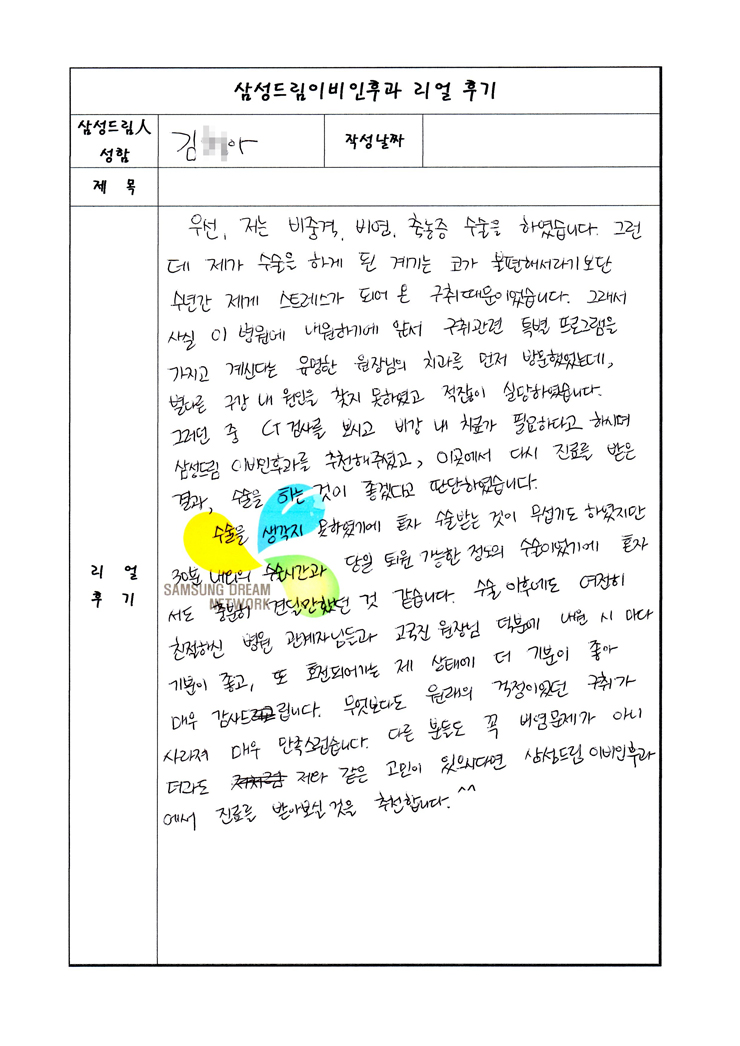 삼성드림이비인후과 리얼 후기
삼성드림人
성함
김 아
작성날짜
제 목
리 얼
후 기
우선, 저는 비중격, 비염, 축농증 수술을 하였습니다. 그런
데 제가 수술을 하게 된 계기는 코가 불편해서라기보단
수년간 제게 스트레스가 되어 온 구취때문이었습니다. 그래서
사실 이 병원에 내원하기에 앞서 구취관련 특별 프로그램을
가지고 계신다는 유명한 원장님의 치과를 먼저 방문했었는데,
별다른 구강 내 원인을 찾지 못하였고 적잖이 실망하였습니다.
그러던 중 CT 검사를 보시고 비강 내 치료가 필요하다고 하시며
삼성드림 이비인후과를 추천해주셨고, 이곳에서 다시 진료를 받은
결과, 수술을 하는 것이 좋겠다고 판단하였습니다.
수술을 생각지 못하였기에 혼자 수술받는 것이 무섭기도 하였지만
30분 내외의 수술시간과 당일 퇴원 가능한 정도의 수술이었기에 혼자
서도 충분히 견딜만했던 것 같습니다. 수술 이후에도 여전히
친절하신 병원 관계자님들과 고국진 원장님 덕분에 내원 시 마다
기분이 좋고, 또 호전되어가는 제 상태에 더 기분이 좋아
매우 감사드립니다. 무엇보다도 원래의 걱정이었던 구취가
사라져 매우 만족스럽습니다. 다른 분들도 꼭 비염문제가 아니
더라도 저와 같은 고민이 있으시다면 삼성드림 이비인후과
에서 진료를 받아보실 것을 추천합니다.^^
SAMSUNG DREAM
NETWORK